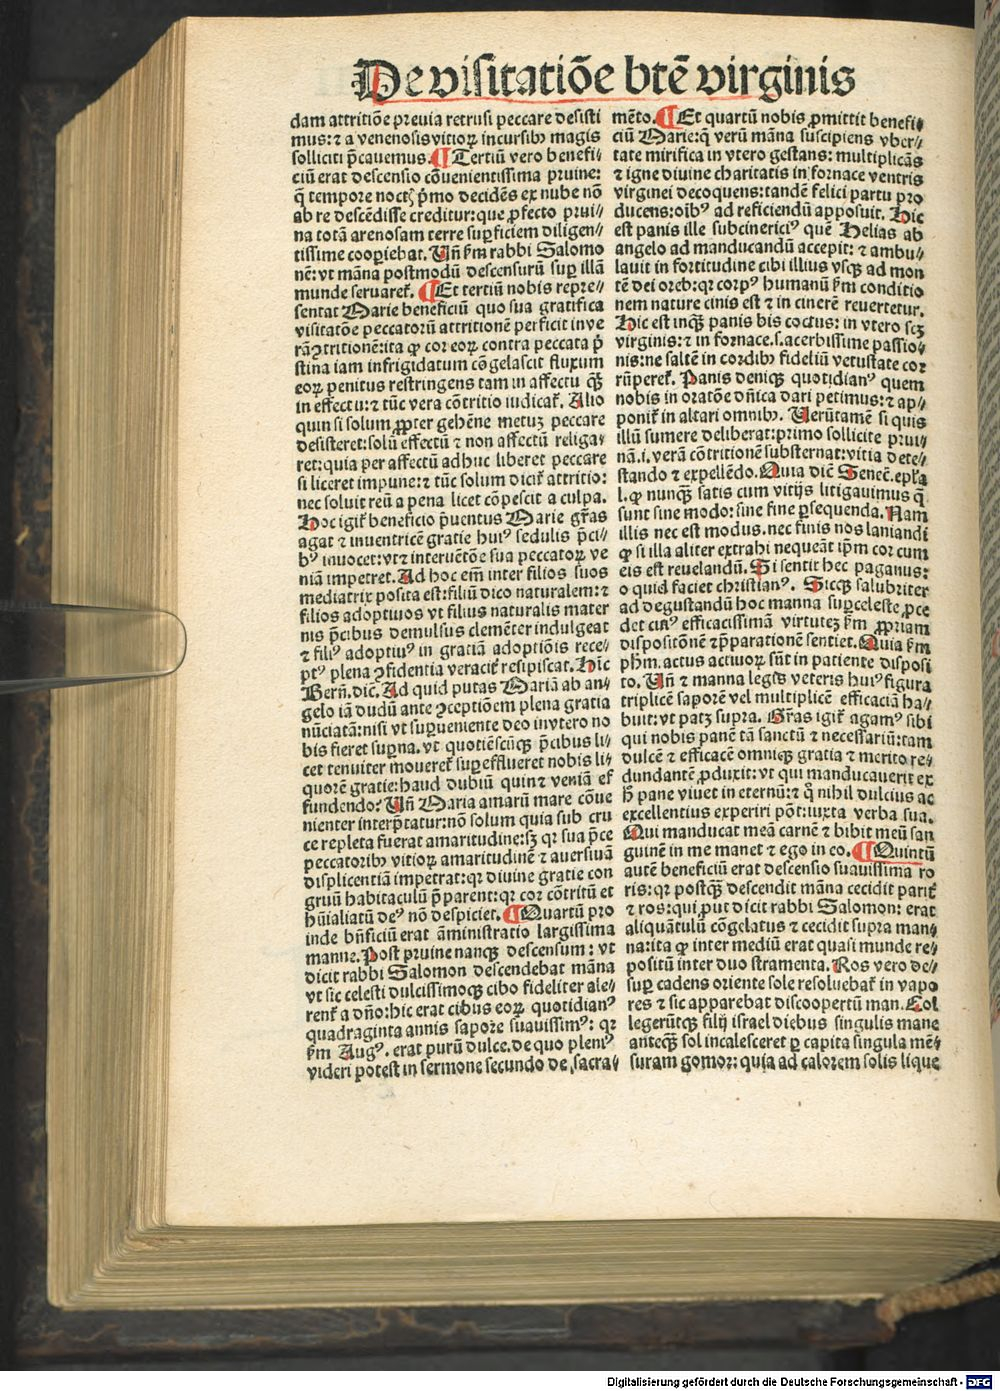 De visitatiōe btē virginis
dam attritiōe preuia retrusi peccare desisti
mus: ⁊ a venenosis vitioꝝ incursibꝫ magis
solliciti p̄cauemus. ¶ Tertiū vero benefi⸗
ciū erat descensio cōuenientissima pruine:
q̄ tempore noctꝭ p̄mo decidēs ex nube nō
ab re descēdisse creditur: que ꝓfecto prui⸗
na totā arenosam terre suꝑficiem diligen⸗
tissime cooꝑiebat. Vn̄ ẜm rabbi Salomo
nē: vt māna postmodū descensurū suꝑ illā
munde seruaret᷑. ¶ Et tertiū nobis repre⸗
sentat Marie beneficiū quo sua gratifica
visitatōe peccatorū attritionē perficit in ve
rā ꝯtritionē: ita ꝙ cor eoꝝ contra peccata p̄
stina iam infrigidatum cōgelascit fluxum
eoꝝ penitus restringens tam in affectu qꝫ̄
in effectu: ⁊ tūc vera cōtritio iudicat᷑. Alio
quin si solum ꝓpter gehēne metuꝫ peccare
desisteret: solū effectū ⁊ non affectū religa⸗
ret: quia per affectū adhuc liberet peccare
si liceret impune: ⁊ tūc solum dicit᷑ attritio:
nec soluit reū a pena licet cōpescit a culpa.
Hoc igit᷑ beneficio p̄uentus Marie gr̄as
agat ⁊ inuentricē gratie huiꝰ sedulis p̄ci⸗
bꝰ inuocet: vt ⁊ interuētōe sua peccatoꝝ ve
niā impetret. Ad hoc em̄ inter filios suos
mediatrix posita est: filiū dico naturalem: ⁊
filios adoptiuos vt filius naturalis mater
nis p̄cibus demulsus clemēter indulgeat
⁊ filiꝰ adoptiuꝰ in gratiā adoptiōis rece⸗
ptꝰ plena ꝯfidentia veracit᷑ resipiscat. Hic̄
Bern̄. dic̄. Ad quid putas Mariā ab an⸗
gelo iā dudū ante ꝯceptiōem plena gratia
nūciatā: nisi vt suꝑueniente deo in vtero no
bis fieret suꝑna. vt quotiēscūqꝫ p̄cibus li⸗
cet tenuiter moueret᷑ suꝑefflueret nobis li⸗
quorē gratie: haud dubiū quin ⁊ veniā ef
fundendo? Vn̄ Maria amarū mare cōue
nienter interp̄tatur: nō solum quia sub cru
ce repleta fuerat amaritudine: sꝫ qꝛ sua p̄ce
peccatoribꝫ vitioꝝ amaritudinē ⁊ auersiuā
displicentiā impetrat: qꝛ diuine gratie con
gruū habitaculū p̄parent: qꝛ cor cōtritū et
hūialiatū deꝰ nō despiciet. ¶ Quartū pro
inde bn̄ficiū erat āministratio largissima
manne. Post pruine nanqꝫ descensum: vt
dicit rabbi Salomon descendebat māna
vt sic celesti dulcissimoqꝫ cibo fideliter ale⸗
rent᷑ a dn̄o: hic erat cibus eoꝝ quotidianꝰ
quadraginta annis sapore suauissimꝰ: qꝛ
ẜm Augꝰ. erat purū dulce. de quo pleniꝰ
videri potest in sermone secundo de sacra⸗
mēto. ¶ Et quartū nobis ꝓmittit benefi⸗
ciū Marie: q̄ verū māna suscipiens vber⸗
tate mirifica in vtero gestans: multiplicās
⁊ igne diuine charitatis in fornace ventris
virginei decoquens: tandē felici partu pro
ducens: oībꝰ ad reficiendū apposuit. Hic
est panis ille subcinericiꝰ quē Helias ab
angelo ad manducandū accepit: ⁊ ambu⸗
lauit in fortitudine cibi illius vsqꝫ ad mon
tē dei oreb: qꝛ corpꝰ humanū ẜm conditio
nem nature cinis est ⁊ in cinerē reuertetur.
Hic est inqꝫ panis bis coctus: in vtero scꝫ
virginis: ⁊ in fornace. s. acerbissime passio⸗
nis: ne saltē in cordibꝫ fideliū vetustate cor
rūperet᷑. Panis deniqꝫ quotidianꝰ quem
nobis in oratōe dn̄ica dari petimus: ⁊ ap⸗
ponit᷑ in altari omnibꝫ. Verūtamē si quis
illū sumere deliberat: primo sollicite prui⸗
nā. i. verā cōtritionē substernat: vitia dete⸗
stando ⁊ expellēdo. Quia dic̄ Senec̄. ep̄la
l. ꝙ nunqꝫ satis cum vitijs litigauimus q̄
sunt sine modo: sine fine ꝑsequenda. Nam
illis nec est modus. nec finis nos laniandi
ꝙ si illa aliter extrahi nequeāt ip̄m cor cum
eis est reuelandū. Si sentit hec paganus:
o quid faciet christianꝰ. Sicqꝫ salubriter
ad degustandū hoc manna suꝑceleste ꝓce
det ciuꝰ efficacissimā virtuteꝫ ẜm ꝓpriam
dispositōnē ⁊ p̄parationē sentiet. Quia ẜm
ph̄m. actus actiuoꝝ sūt in patiente disposi
to. Vn̄ ⁊ manna legꝭ veteris huiꝰ figura
triplicē saporē vel multiplicē efficaciā ha⸗
buit: vt patꝫ supra. Gr̄as igit᷑ agamꝰ sibi
qui nobis panē tā sanctū ⁊ necessariū: tam
dulcē ⁊ efficacē omniqꝫ gratia ⁊ merito re⸗
dundantē ꝓduxit: vt qui manducauerit ex
h̄ pane viuet in eternū: ⁊ qͦ nihil dulcius ac
excellentius experiri pōt: iuxta verba sua.
Qui manducat meā carnē ⁊ bibit meū san
guinē in me manet ⁊ ego in eo. ¶ Quintū
autē beneficiū erat descensio suauissima ro
ris: qꝛ postqꝫ̄ descendit māna cecidit parit᷑
⁊ ros: qui ꝓut dicit rabbi Salomon: erat
aliquātulū cōgelatus ⁊ cecidit supra man⸗
na: ita ꝙ inter mediū erat quasi munde re⸗
positū inter duo stramenta. Ros vero de⸗
suꝑ cadens oriente sole resoluebat᷑ in vapo
res ⁊ sic apparebat discoopertū man. Col
legerūtqꝫ filij israel diebus singulis mane
anteqꝫ̄ sol incalesceret ꝑ capita singula mē⸗
suram gomor: quia ad calorem solis lique
Digitalisierung gefördert durch die Deutsche Forschungsgemeinschaft - DFG